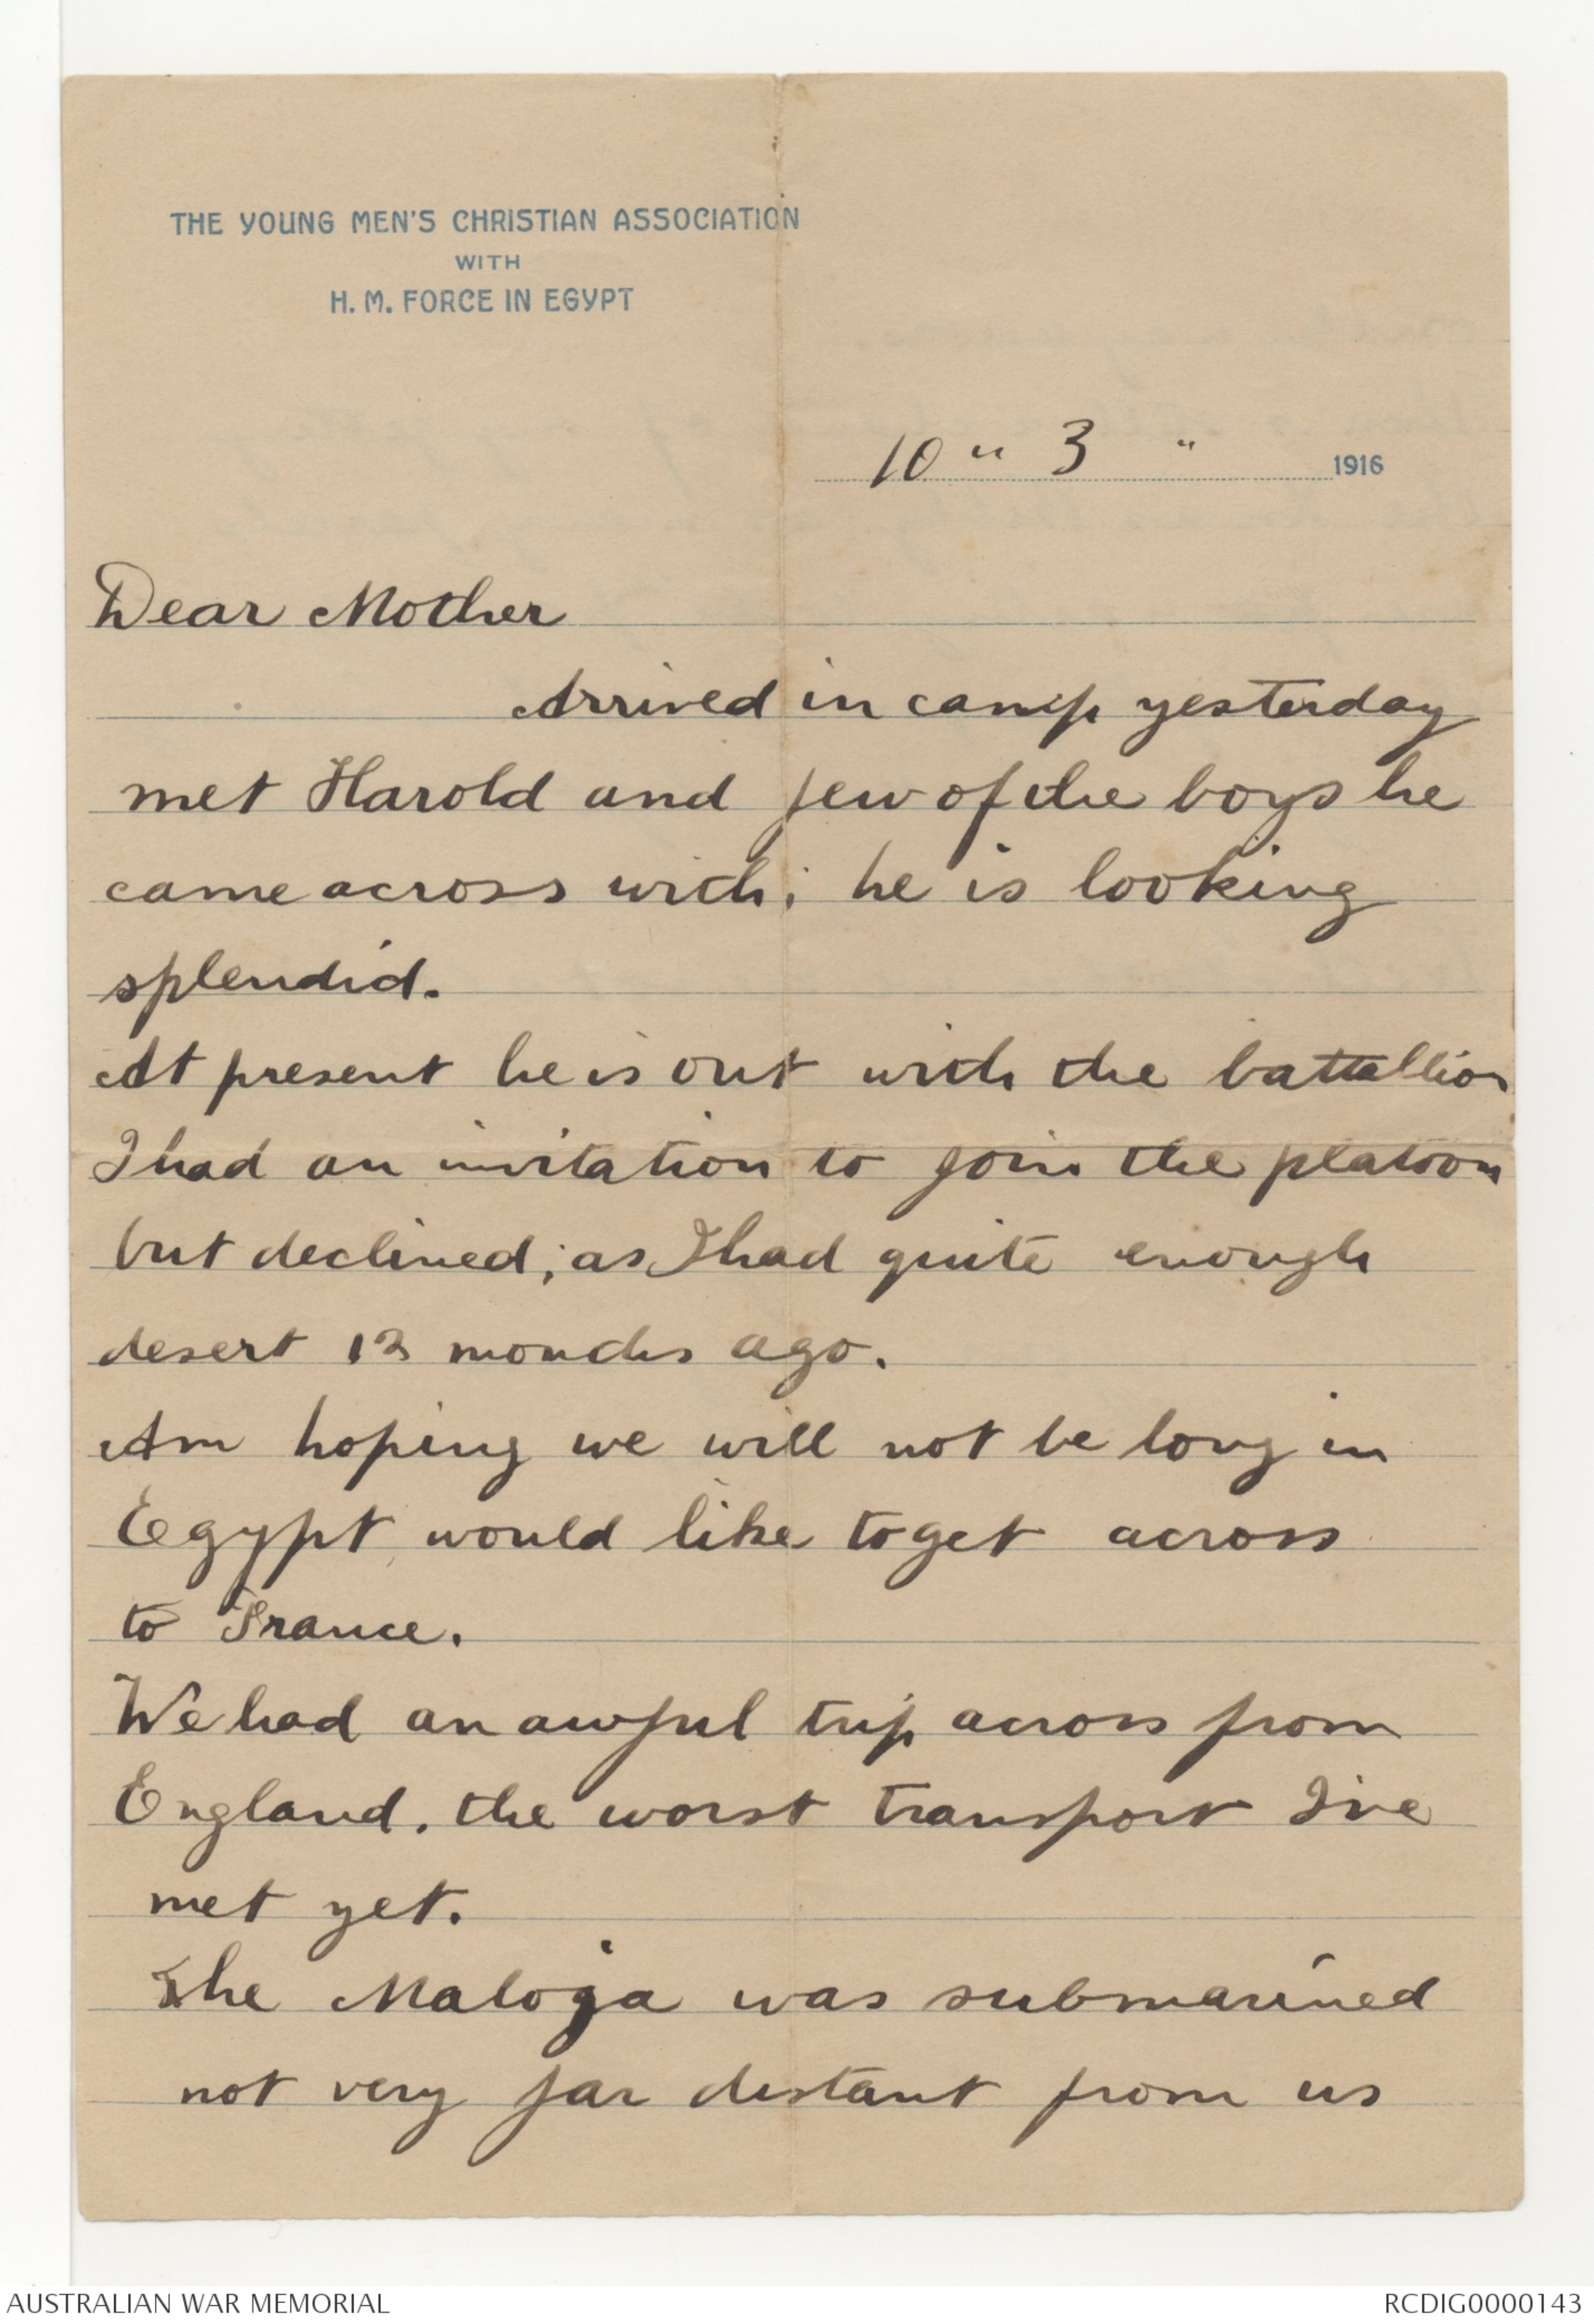 THE YOUNG MEN'S CHRISTIAN ASSOCIATION
WITH
H. M. FORCE IN EGYPT
10 " 3 " 1916
Dear Mother
Arrived in camp yesterday
met Harold and few of the boys he
came across with; he is looking
splendid.
At present he is out with the battallion
I had an invitation to join the platoon
but declined; as I had quite enough
desert 12 months ago.
Am hoping we will not be long in
Egypt would like to get across
to France.
We had an awful trip across from
England. the worst transport I've
met yet.
The Maloja was submarined
not very far distant from us
AUSTRALIAN WAR MEMORIAL
RCDIG0000143